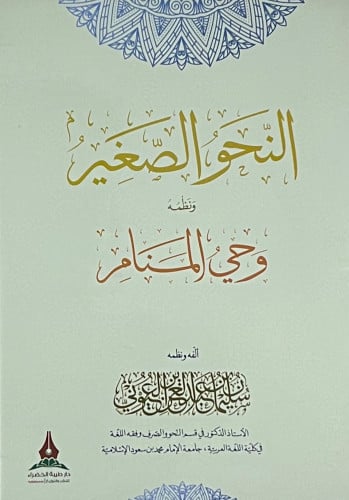 النَّحْوُ الصَّغِيْرُ
وَنَظْمُهُ
وَحْيُ الْمَنَامِ
ألفه ونظمه
سليمان بن عبد العزيز العيوني
الأستاذ الدكتور في قسم النحو والصرف وفقه اللغة
في كلية اللغة العربية، جامعة الإمام محمد بن سعود الإسلامية
دار طيبة الخضراء